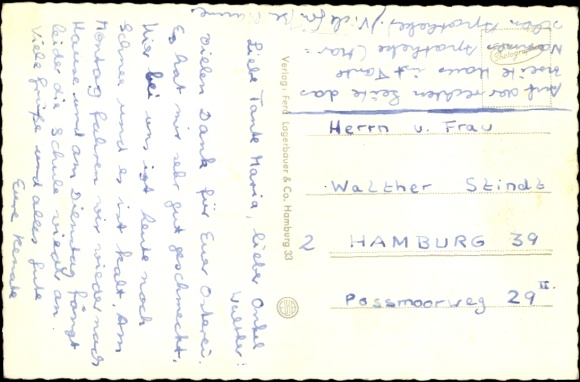 Liebe Tante Maria, lieber Onkel
Walther!
Vielen Dank für Euer Osterei.
Es hat mir sehr gut geschmeckt.
Hier bei uns ist heute noch
Schnee und es ist kalt. Am
Montag fahren wir wieder nach
Hause und am Dienstag fängt
leider die Schule wieder an.
Viele Grüße und alles Gute
Eure Renate
Auf der rechten Seite das
zweite Haus ist Tante
Apotheke
Apotheke) Viele Grüße
Verlag: Ferd. Lagerbauer & Co. Hamburg 33
Herrn u. Frau
Walther Stindt
2 HAMBURG 39
Possmoorweg 29 II.